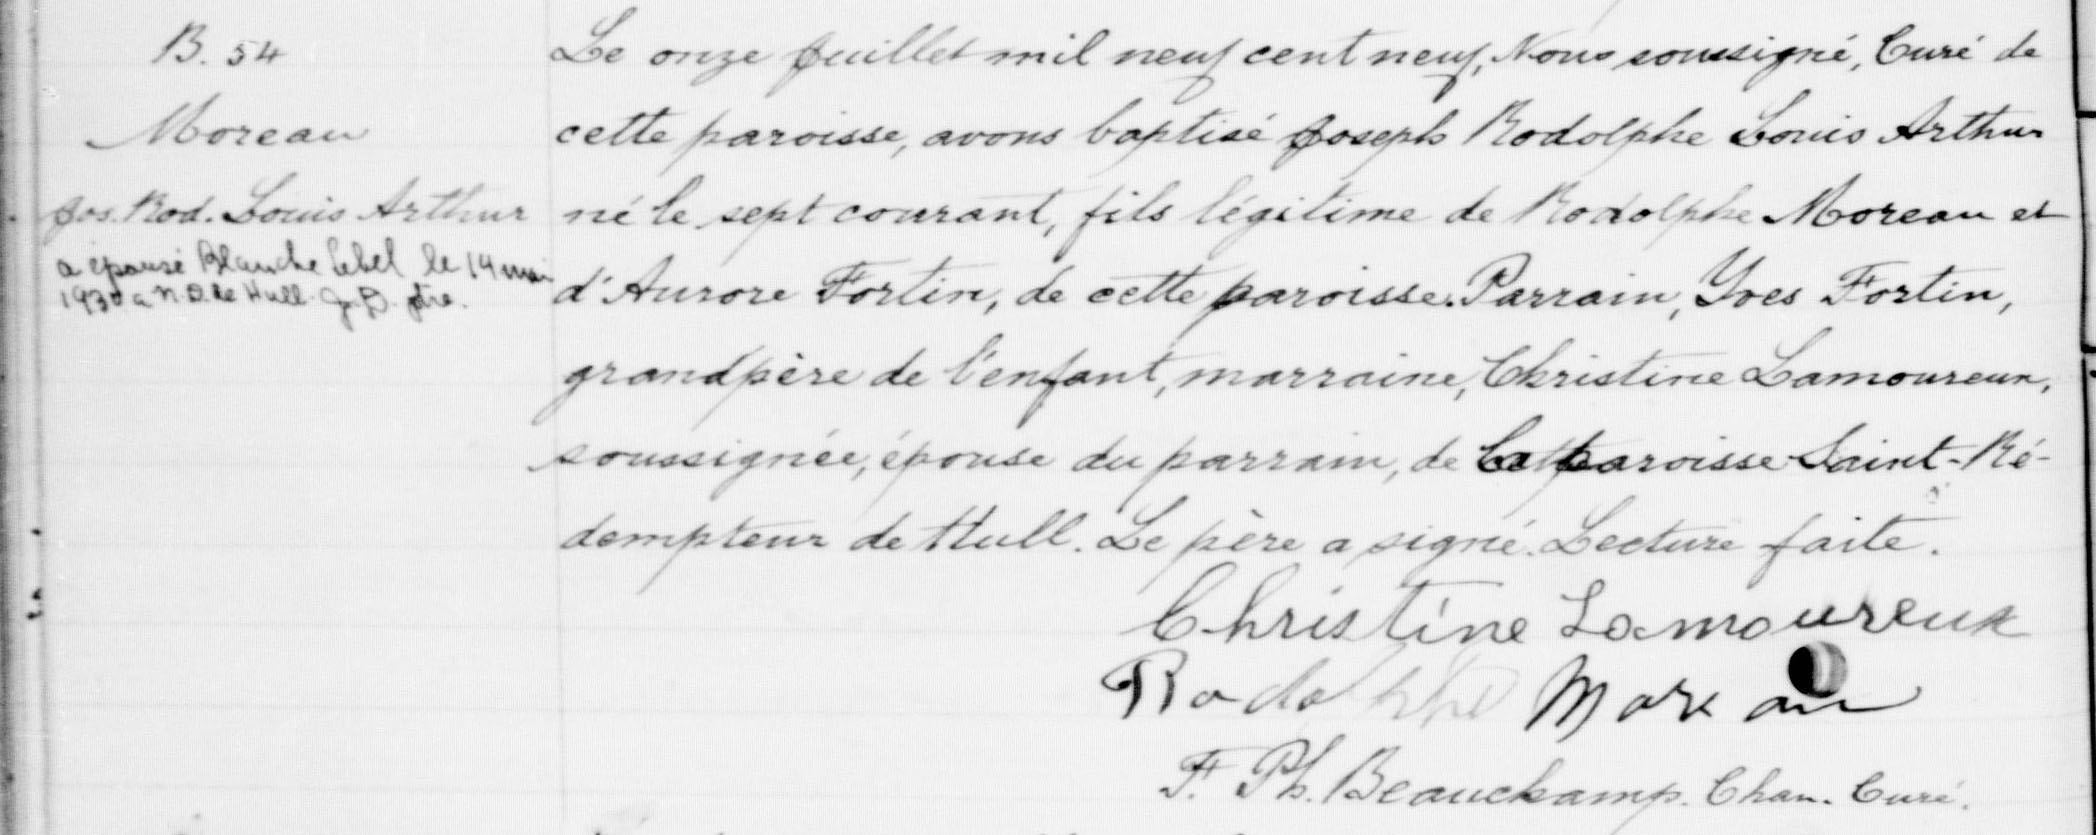 B. 54
Moreau
Jos. Rod. Louis Arthur
a épousé Blanche Lebel le 14 mai
1930 à N. D. de Hull. J. D. ptre.
Le onze Juillet mil neuf cent neuf, Nous soussigné, Curé de
cette paroisse, avons baptisé Joseph Rodolphe Louis Arthur
né le sept courant, fils légitime de Rodolphe Moreau et
d'Aurore Fortin, de cette paroisse. Parrain, Yves Fortin,
grandpère de l'enfant, marraine, Christine Lamoureux,
soussignée, épouse du parrain, de la paroisse Saint-Ré-
dempteur de Hull. Le père a signé. Lecture faite.
Christine Lamoureux
Rodolphe Moreau
F. Ph. Beauchamp. Chan. Curé.